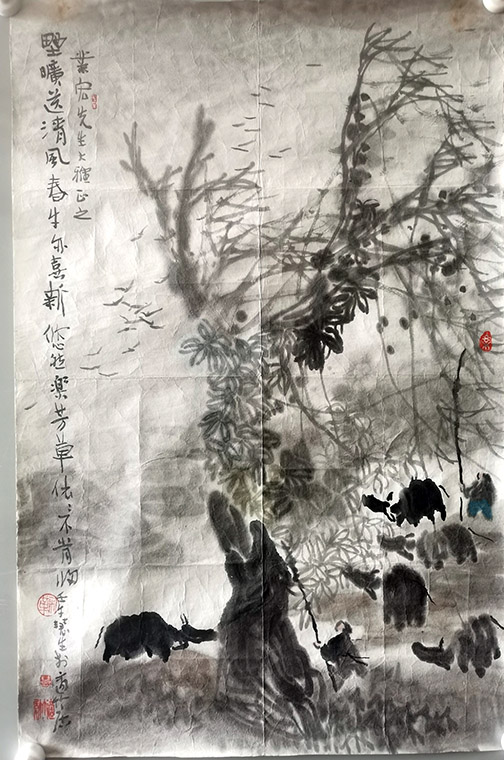 業宏先生大雅正之
野曠送清風春牛亦喜新悠然樂芳草依依不肯归壬午